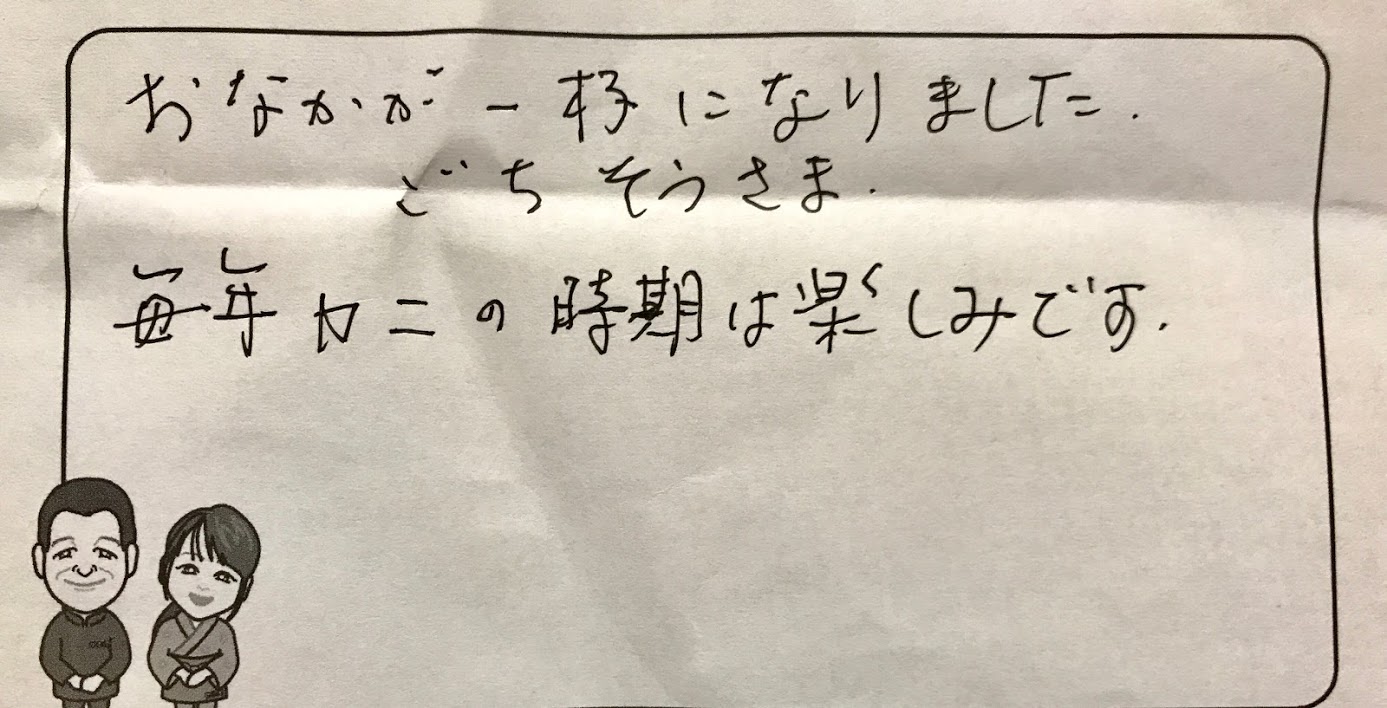 おなかが一杯になりました.
ごちそうさま.
毎年カニの時期は楽しみです.